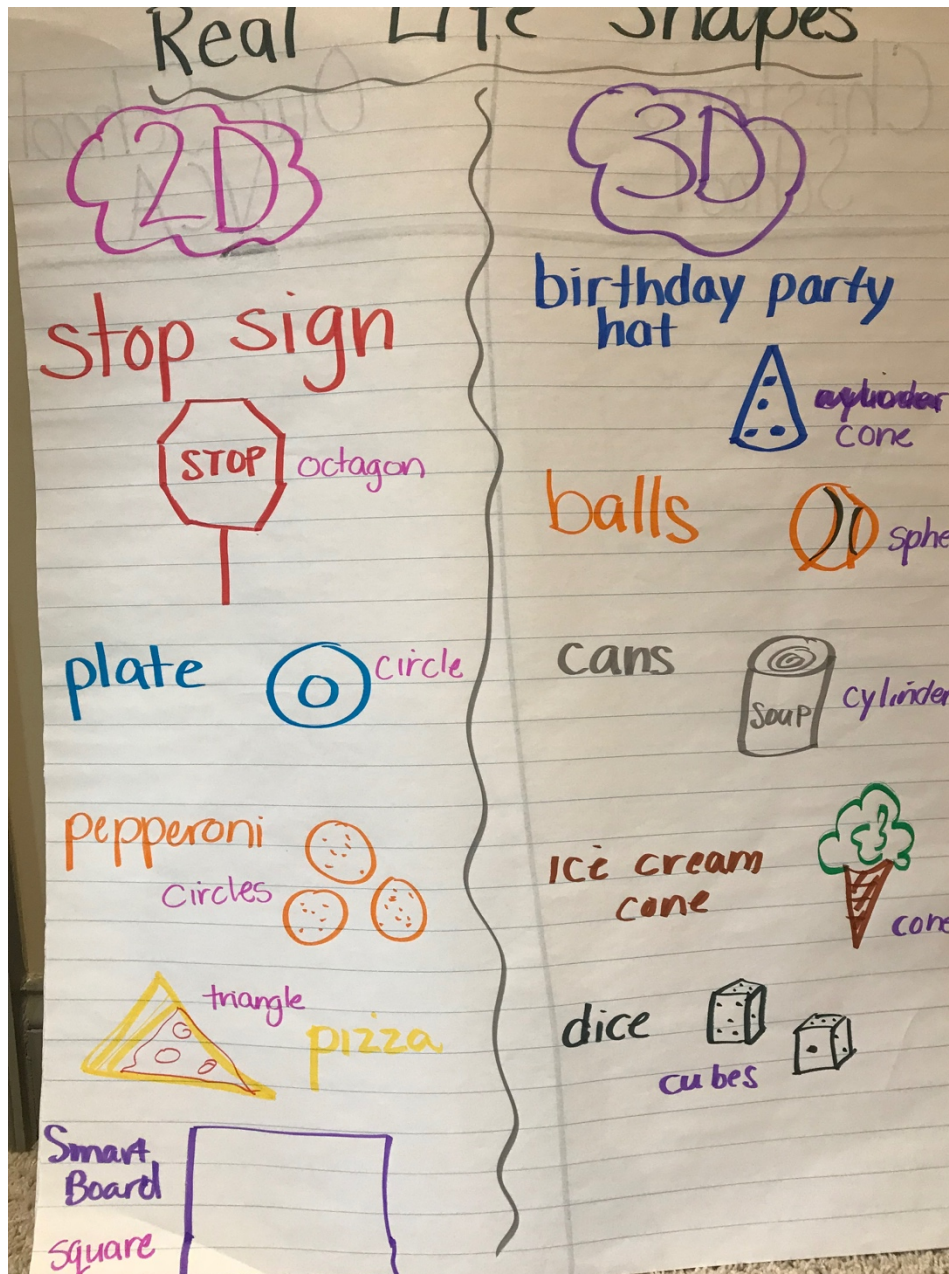 Real Life Shapes
2D
stop sign
STOP
octagon
plate
circle
pepperoni
circles
triangle
pizza
Smart
Board
square
3D
birthday party
hat
cylinder
cone
balls
sphe
cans
soup
cylinder
ice cream
cone
cone
dice
cubes